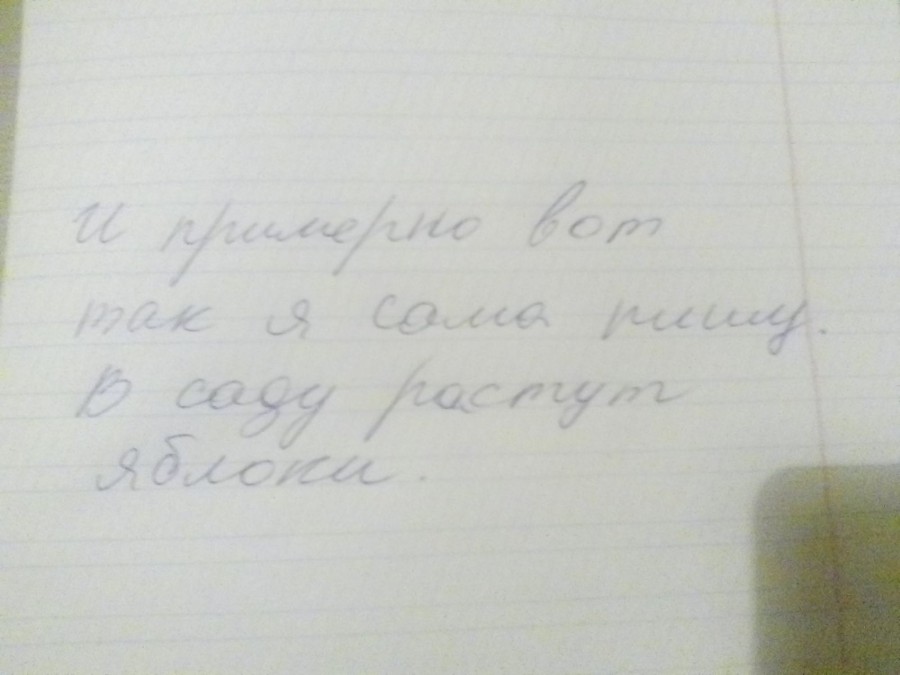 И примерно вот
так я сама пишу.
В саду растут
яблоки.